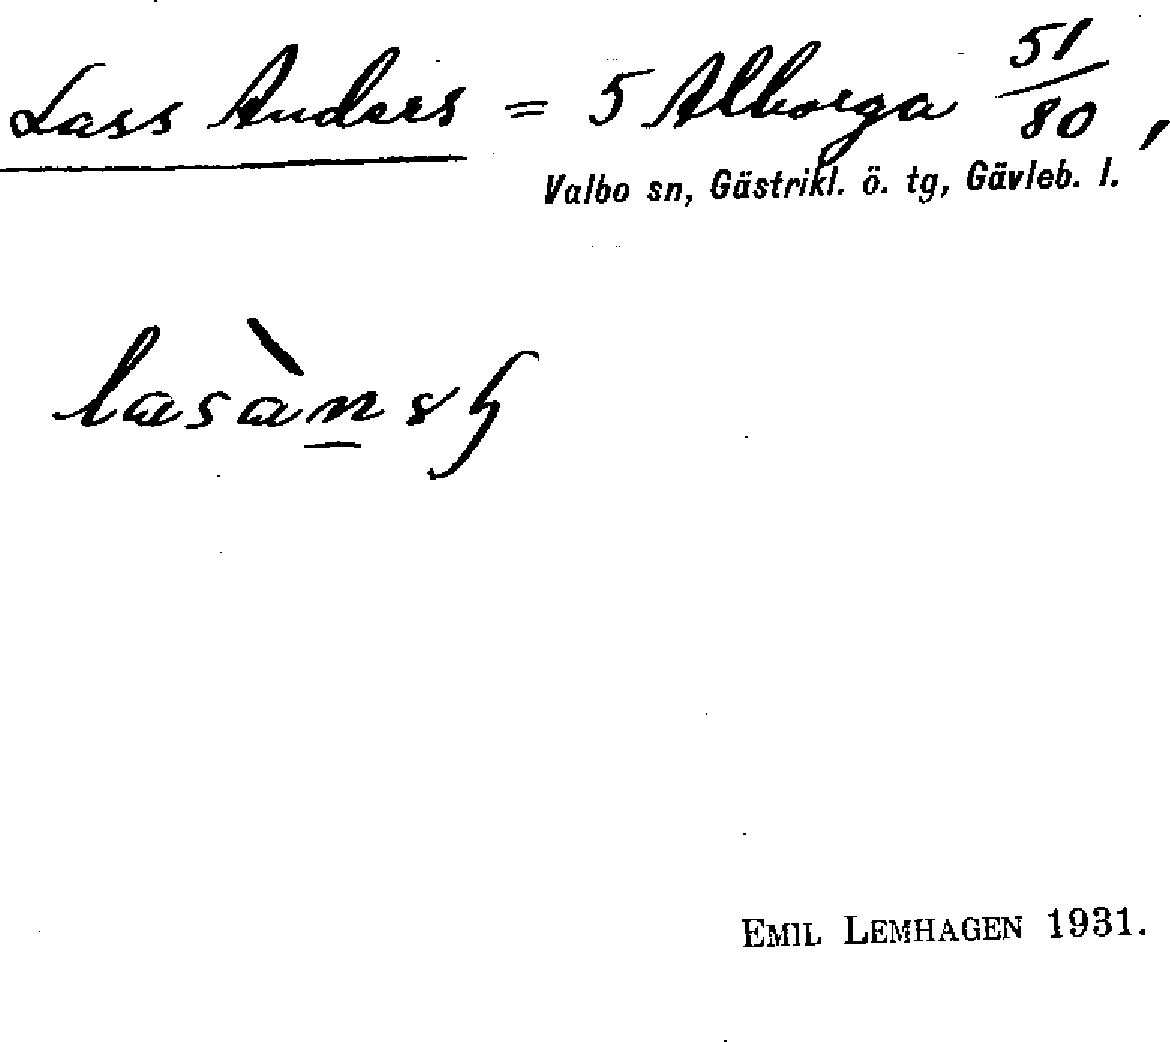 Lass Anders = 5 Alborga 51/80,
Valbo sn, Gästrikl. ö. tg, Gävleb. l.
EMIL LEMHAGEN 1931.